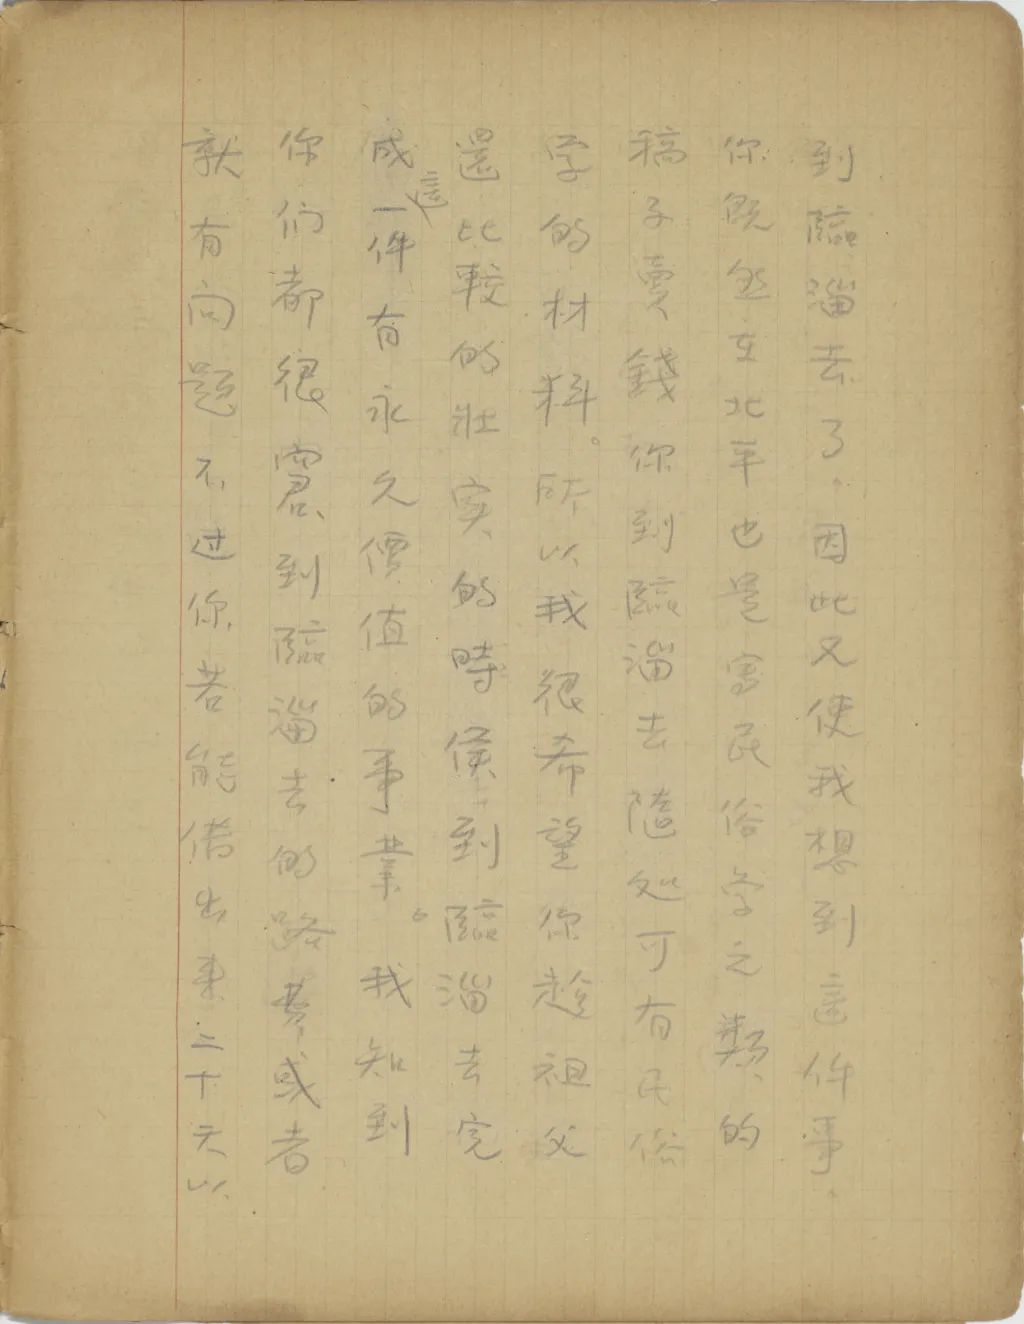 到臨淄去了。因此又使我想到這件事。
你既然在北平也是寫民俗学之類的
稿子賣錢你到臨淄去隨处可有民俗
学的材料。所以我很希望你趁祖父
還比較的壯实的時候到臨淄去完
成這一件有永久價值的事業。我知到
你们都很窘、到臨淄去的路費或者
就有问题不过你若能借出来二十天以